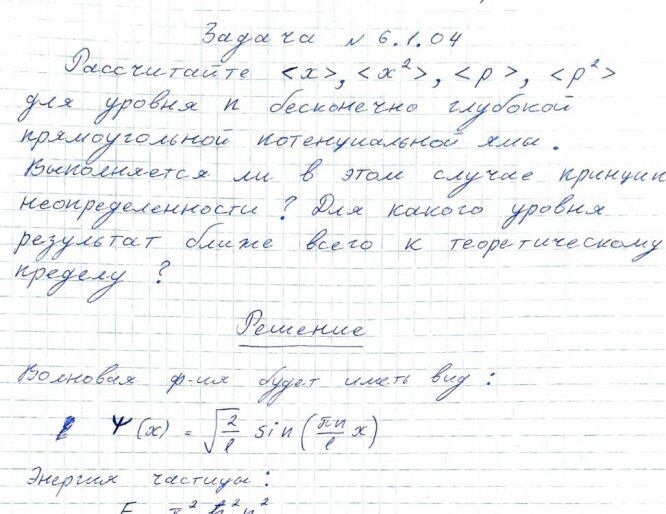 Задача № 6.1.04
Рассчитайте <x>, <x²>, <p>, <p²>
для уровня n бесконечно глубокой
прямоугольной потенциальной ямы.
Выполняется ли в этом случае принцип
неопределенности? Для какого уровня
результат ближе всего к теоретическому
пределу?
Решение
Волновая ф-ия будет иметь вид:
Ψ(x) = √(2/l) sin(πn/l x)
Энергия частицы:
π² ħ² n²